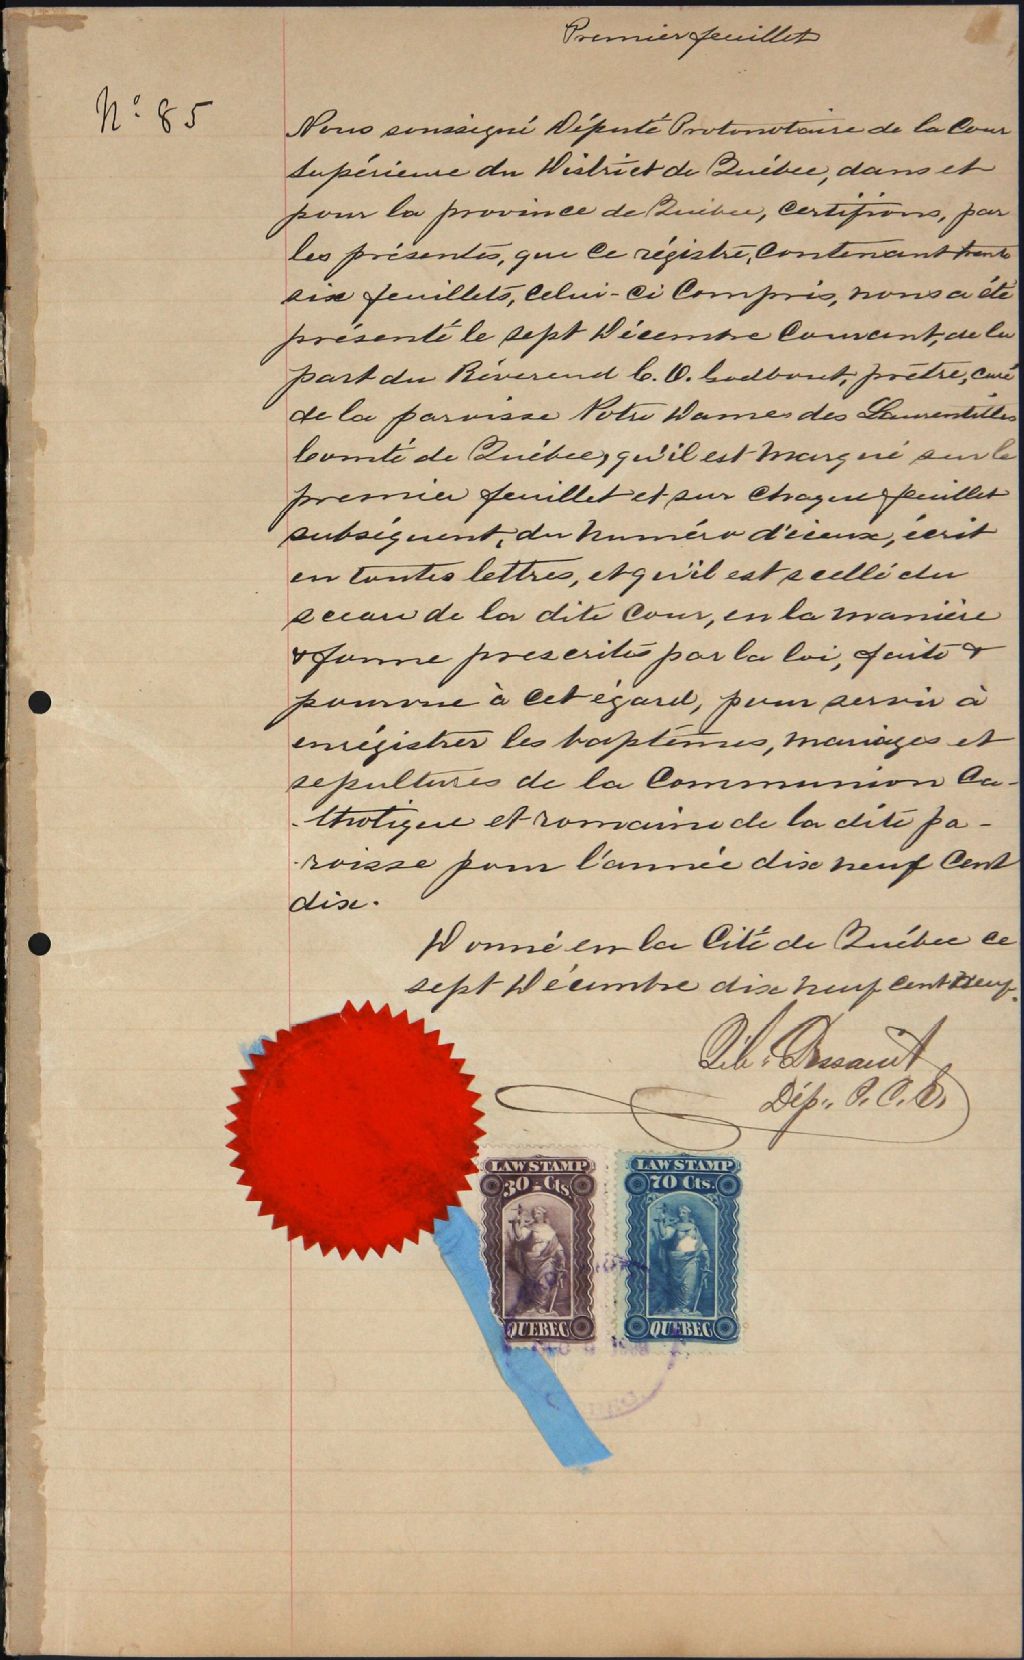 Premier feuillet
No. 85
Nous soussigné Député Protonotaire de la Cour
Supérieure du District de Québec, dans et
pour la province de Québec, certifions, par
les présentes, que ce régistre, contenant trente
six feuillets, celui-ci compris, nous a été
présenté le sept Décembre courant, de la
part du Révérend C. O. Godbout, prêtre, curé
de la paroisse Notre Dames des Laurentides
Comté de Québec, qu'il est marqué sur le
premier feuillet et sur chaque feuillet
subséquent, du numéro d'iceux, écrit
en toutes lettres, et qu'il est scellé du
sceau de la dite Cour, en la manière
& forme prescrites par la loi, faite &
pourvue à cet égard, pour servir à
enrégistrer les baptêmes, mariages et
sépultures de la Communion Ca-
-tholique et romaine de la dite pa-
-roisse pour l'année dix neuf cent
dix.
Donné en la Cité de Québec ce
sept Décembre dix neuf cent neuf.
Dép. P. C. S.
LAW STAMP LAW STAMP
30 Cts. 70 Cts.
QUEBEC QUEBEC